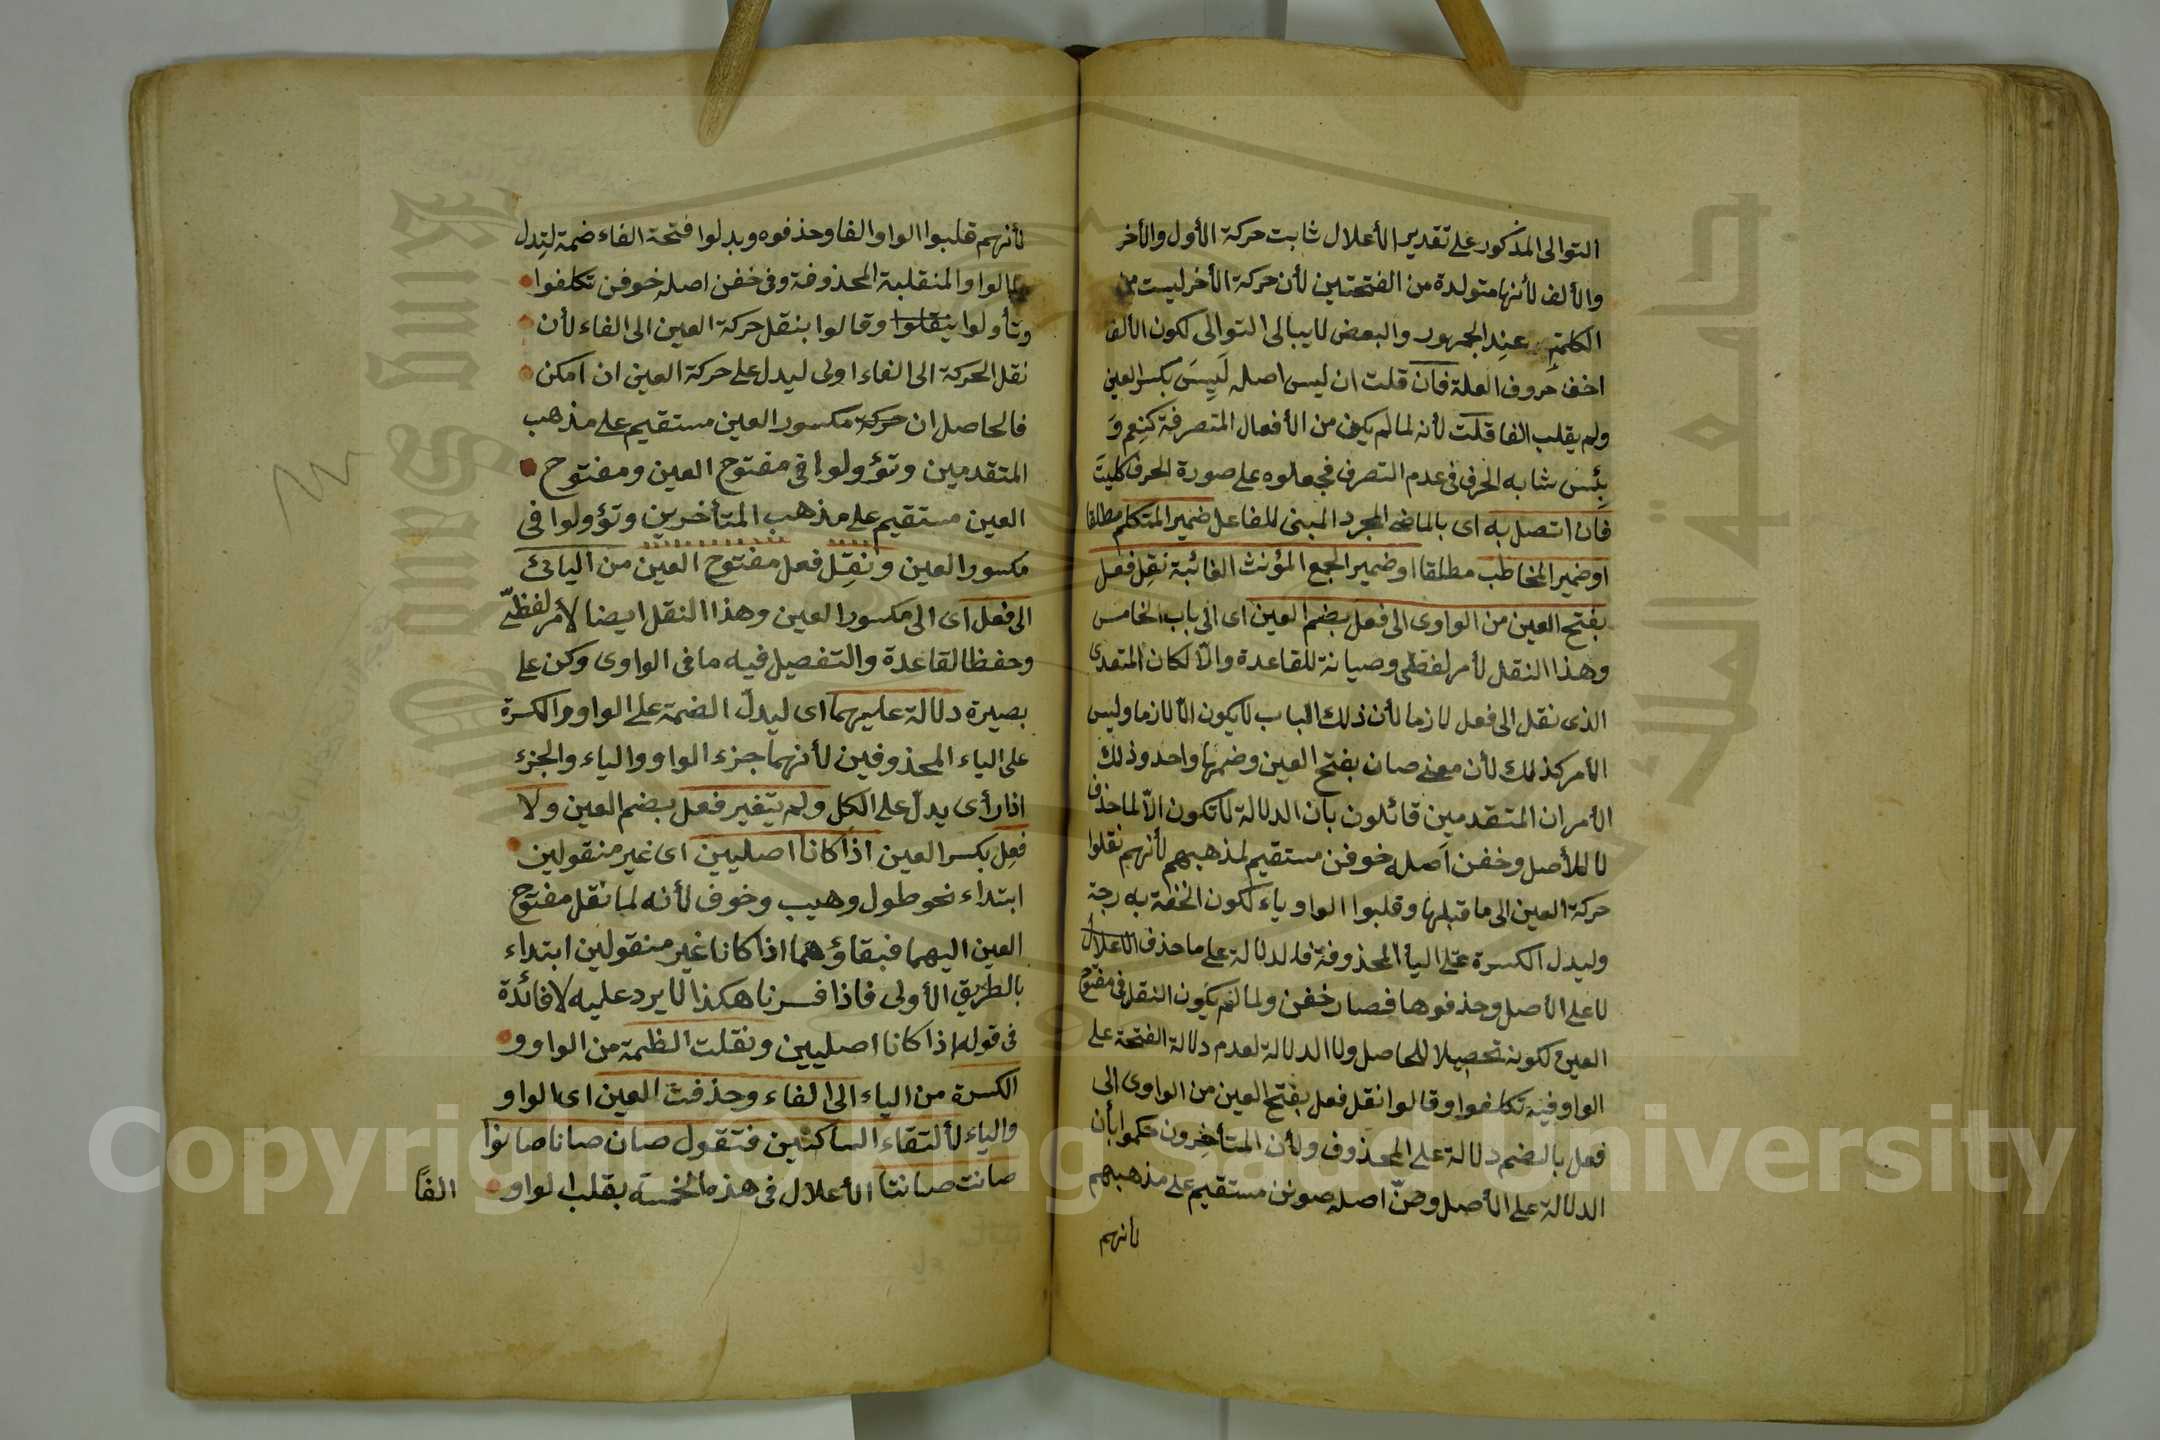 التوالى المذكور على تقدير الأعلال ثابت حركة الأول والأخر
والألف لأنها متولدة من الفتحتين لأن حركة الأخر ليست من
الكلمة عند الجمهور والبعض لا يبالى التوالى لكون الألف
اخف حروف العلة فان قلت ان ليس اصله لَيِسَ بكسر العين
ولم يقلب الفا قلت لأنه لما لم يكن من الأفعال المتصرفة كنِعم وَ
بِئس شابه الحرف فى عدم التصرف فجعلوه على صورة الحرف كليتَ
فان اتصل به اى بالماضى المجرد المبنى للفاعل ضمير المتكلم مطلقا
او ضمير المخاطب مطلقا او ضمير الجمع المؤنث الغائبة نقِل فعَل
بفتح العين من الواوى الى فعل بضم العين اى الى باب الخامس
وهذا النقل لأمر لفظى وصيانة للقاعدة والّا لكان المتعدى
الذى نقل الى فعل لازما لأن ذلك الباب لا يكون الّا لازما وليس
الأمر كذلك لأن معنى صان بفتح العين وضمها واحد وذلك
الأمر ان المتقدمين قائلون بأن الدلالة لا تكون الّا لما حذف
لا للأصل وخفن اصله خوفن مستقيم لمذهبهم لأنهم نقلوا
حركة العين الى ما قبلها وقلبوا الواو ياء لكون الخفة به
وليدل الكسرة على اليأ المحذوفة فالدلالة على ما حذف الاعلال
لا على الأصل وحذفوها فصار خفن ولما لم يكون النقل فى مفتوح
العين لكونه تحصيلا للحاصل ولا الدلالة لعدم دلالة الفتحة على
الواو فيه تكلفوا وقالوا نقل فعل بفتح العين من الواوى الى
فعل بالضم دلالة على المحذوف ولأن المتأخرون حكموا بأن
الدلالة على الأصل وصنّ اصله صونن مستقيم على مذهبهم
لأنهم
لأنهم قلبوا الواو الفا وحذفوه وبدلوا فتحة الفاء ضمة لتدل
الواو المنقلبة المحذوفة وفى خفن اصله خوفن تكلفوا
وتأولوا ينقلوا وقالوا بنقل حركة العين الى الفاء لأن
نقل الحركة الى الفاء اولى ليدل على حركة العين ان امكن
فالحاصل ان حركة مكسور العين مستقيم على مذهب
المتقدمين وتؤولوا فى مفتوح العين ومفتوح
العين مستقيم على مذهب المتأخرين وتؤولوا فى
مكسور العين ونقِل فعل مفتوح العين من اليائى
الى فعل اى الى مكسور العين وهذا النقل ايضا لأمر لفظىّ
وحفظا لقاعدة والتفصيل فيه ما فى الواوى وكن على
بصيرة دلالة عليهما اى ليدلّ الضمة على الواو والكسرة
على الياء المحذوفين لأنهما جزء الواو والياء والجزء
اذا رأى يدلّ على الكل ولم يتغير فعل بضم العين ولا
فعِل بكسر العين اذا كانا اصليين اى غير منقولين
ابتداء نحو طول وهيب وخوف لأنه لما نقل مفتوح
العين اليهما فبقاؤهما اذا كانا غير منقولين ابتداء
بالطريق الأولى فاذا فسرنا هكذا لا يرد عليه لا فائدة
فى قوله اذا كانا اصليين ونقلت الظمة من الواو و
الكسرة من الياء الى الفاء وحذفت العين اى الواو
والياء لألتقاء الساكنين فتقول صان صانا صانوا
صانت صانتا الأعلال فى هذه الخمسة بقلب الواو
الفًا
Copyright © King Saud University
King Saud University
جامعة الملك